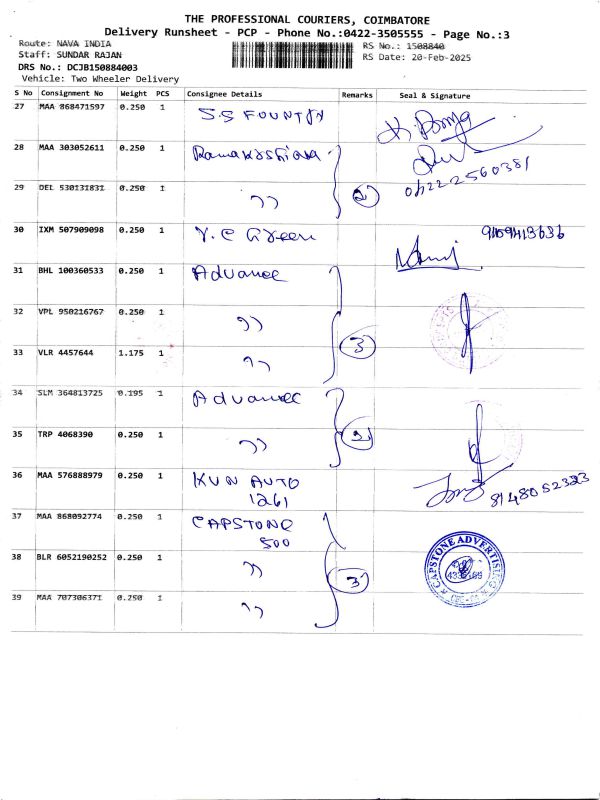 THE PROFESSIONAL COURIERS, COIMBATORE
Delivery Runsheet - PCP - Phone No.:0422-3505555 - Page No.:3
Route: NAVA INDIA
RS No.: 1508840
Staff: SUNDAR RAJAN
RS Date: 20-Feb-2025
DRS No.: DCJB150884003
Vehicle: Two Wheeler Delivery
S No Consignment No Weight PCS Consignee Details Remarks Seal & Signature
27 MAA 868471597 0.250 1 S.S FOUNTIN
28 MAA 303052611 0.250 1
29 DEL 530131831 0.250 1 ,, 2 04222560381
30 IXM 507909098 0.250 1 V.C Green
31 BHL 100360533 0.250 1 Advance
32 VPL 950216767 0.250 1 ,,
33 VLR 4457644 1.175 1 ,, 3
34 SLM 364813725 0.195 1 Advance
35 TRP 4068390 0.250 1 ,, 2
36 MAA 576888979 0.250 1 KUN AUTO 8148052323
1261
37 MAA 868092774 0.250 1 CAPSTONE
500
38 BLR 6052190252 0.250 1 ,, 3 CAPSTONE ADVERTISING
39 MAA 707306371 0.250 1 ,,